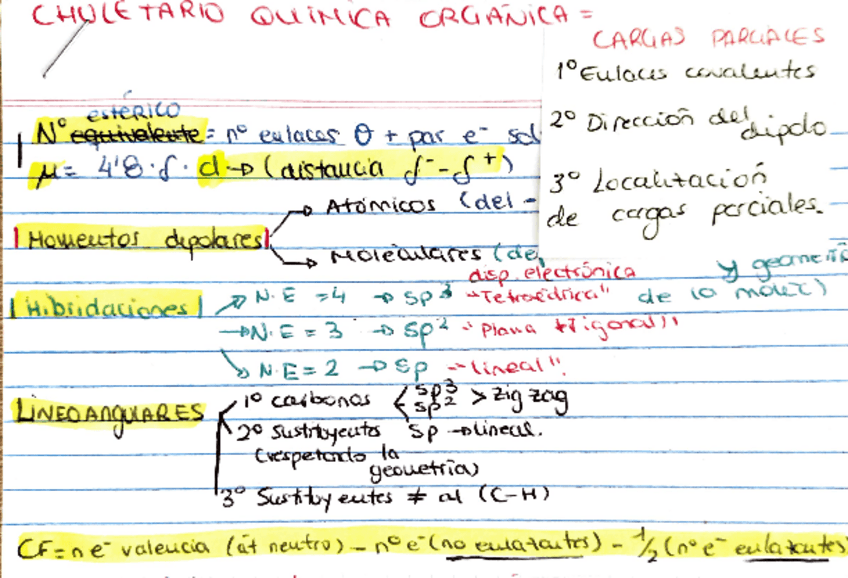 CHULETARIO QUÍMICA ORGÁNICA =
CARGAS PARCIALES
1º Enlaces covalentes
2º Dirección del dipolo
3º Localización
de cargas parciales.
estérico
Nº equivalente = nº enlaces θ + par e⁻ sol
μ = 4'8 · δ · d → (distancia δ⁻ - δ⁺)
Momentos dipolares
→ Atómicos (del -
→ Moleculares (de
y geometri
de la molec)
disp. electrónica
Hibridaciones → N.E = 4 → sp³ "Tetraédrica"
→ N.E = 3 → sp² "Plana trigonal"
→ N.E = 2 → sp "lineal".
LINEOANGULARES
1º carbonos < sp³ sp² > zig zag
2º Sustituyentes sp → lineal.
(respetando la
geometría)
3º Sustituyentes ≠ al (C-H)
CF = n e⁻ valencia (át neutro) - nº e⁻ (no enlazantes) - 1/2 (nº e⁻ enlazantes)